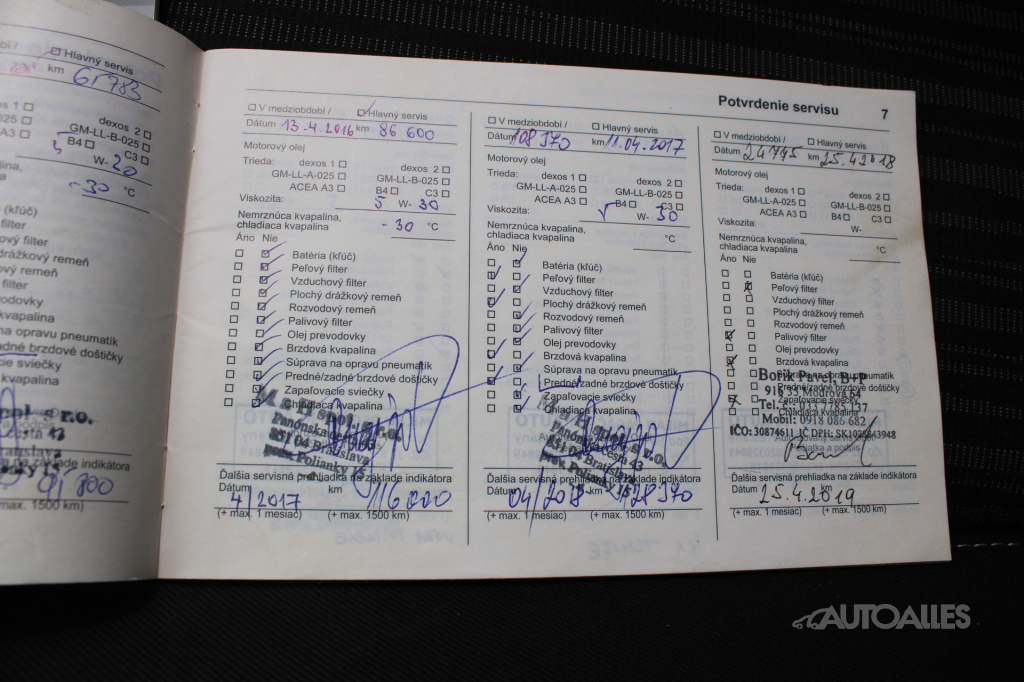 Hlavný servis
km 61783
dexos 1
dexos 2
-025
GM-LL-B-025
A3
B4
C3
W- 20
-30 °C
(kľúč)
filter
ový filter
drážkový remeň
vý remeň
filter
vodovky
kvapalina
na opravu pneumatík
adné brzdové doštičky
cie sviečky
kvapalina
s r.o.
na základe indikátora
(+ max. 1500 km)
Potvrdenie servisu 7
V medziobdobí / Hlavný servis
Dátum 13.4.2016 km 86 600
Motorový olej
Trieda: dexos 1 dexos 2
GM-LL-A-025 GM-LL-B-025
ACEA A3 B4 C3
Viskozita: 5 W- 30
Nemrznúca kvapalina,
chladiaca kvapalina - 30 °C
Áno Nie
Batéria (kľúč)
Peľový filter
Vzduchový filter
Plochý drážkový remeň
Rozvodový remeň
Palivový filter
Olej prevodovky
Brzdová kvapalina
Súprava na opravu pneumatík
Predné/zadné brzdové doštičky
Zapaľovacie sviečky
Chladiaca kvapalina
Panónska cesta
851 04 Bratislava
Ďalšia servisná prehliadka na základe indikátora
Dátum km
4/2017 116000
(+ max. 1 mesiac) (+ max. 1500 km)
V medziobdobí / Hlavný servis
Dátum 108 970 km 11.04.2017
Motorový olej
Trieda: dexos 1 dexos 2
GM-LL-A-025 GM-LL-B-025
ACEA A3 B4 C3
Viskozita: W- 30
Nemrznúca kvapalina,
chladiaca kvapalina °C
Áno Nie
Batéria (kľúč)
Peľový filter
Vzduchový filter
Plochý drážkový remeň
Rozvodový remeň
Palivový filter
Olej prevodovky
Brzdová kvapalina
Súprava na opravu pneumatík
Predné/zadné brzdové doštičky
Zapaľovacie sviečky
Chladiaca kvapalina
Panónska cesta 43
851 04 Bratislava
Ďalšia servisná prehliadka na základe indikátora
Dátum km
04/2018
(+ max. 1 mesiac) (+ max. 1500 km)
V medziobdobí / Hlavný servis
Dátum km 25.4.2018
Motorový olej
Trieda: dexos 1 dexos 2
GM-LL-A-025 GM-LL-B-025
ACEA A3 B4 C3
Viskozita: W-
Nemrznúca kvapalina,
chladiaca kvapalina °C
Áno Nie
Batéria (kľúč)
Peľový filter
Vzduchový filter
Plochý drážkový remeň
Rozvodový remeň
Palivový filter
Olej prevodovky
Brzdová kvapalina
Súprava na opravu pneumatík
Predné/zadné brzdové doštičky
Zapaľovacie sviečky
Chladiaca kvapalina
Bořík Pavel, BVP
916 35 Modrová 64
Mobil: 0918 086 682
IČO: 30874611, IČ DPH:
Ďalšia servisná prehliadka na základe indikátora
Dátum 25.4.2019 km
(+ max. 1 mesiac) (+ max. 1500 km)
AUTOALLES